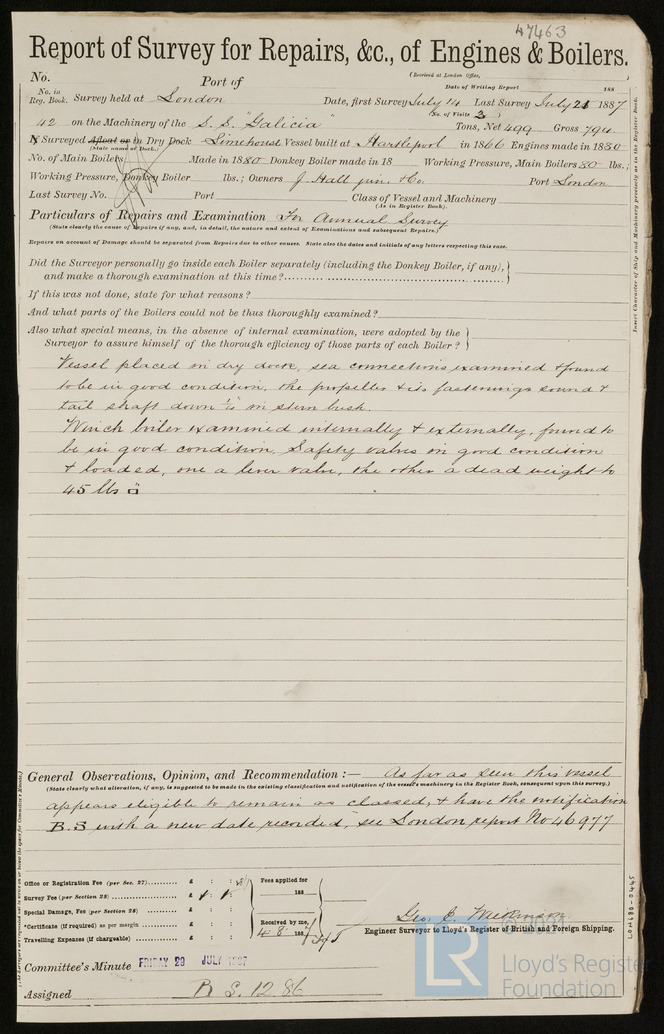 47463
Report of Survey for Repairs, &c., of Engines & Boilers.
(Received at London Office,
No. Port of Date of Writing Report 188
No. in Reg. Book. Survey held at London Date, first Survey July 14 Last Survey July 21 1887
(No. of Visits 2)
42 on the Machinery of the S. S. "Galicia" Tons, Net 499 Gross 794
Surveyed Afloat or in Dry Dock Limehouse Vessel built at Hartlepool in 1866 Engines made in 1880
(State name of Dock.)
No. of Main Boilers Made in 1880 Donkey Boiler made in 18 Working Pressure, Main Boilers 80 lbs.;
Working Pressure, Donkey Boiler lbs.; Owners J. Hall jun. & Co. Port London
Last Survey No. Port Class of Vessel and Machinery
(As in Register Book).
Particulars of Repairs and Examination For Annual Survey
(State clearly the cause of Repairs if any, and, in detail, the nature and extent of Examinations and subsequent Repairs.)
Repairs on account of Damage should be separated from Repairs due to other causes. State also the dates and initials of any letters respecting this case.
Did the Surveyor personally go inside each Boiler separately (including the Donkey Boiler, if any),
and make a thorough examination at this time?
If this was not done, state for what reasons?
And what parts of the Boilers could not be thus thoroughly examined?
Also what special means, in the absence of internal examination, were adopted by the
Surveyor to assure himself of the thorough efficiency of those parts of each Boiler?
Vessel placed in dry dock, sea connections examined & found
to be in good condition, the propeller & its fastenings sound &
tail shaft down 1/16 in stern bush.
Winch boiler examined internally & externally, found to
be in good condition. Safety valves in good condition
& loaded, one a lever valve, the other a dead weight to
45 lbs □
General Observations, Opinion, and Recommendation :— As far as seen this vessel
(State clearly what alteration, if any, is suggested to be made in the existing classification and notification of the vessel's machinery in the Register Book, consequent upon this survey.)
appears eligible to remain as classed, & have the notification
B.S with a new date recorded, see London report No 46977
Office or Registration Fee (per Sec. 27) £ : :
Fees applied for
188
Survey Fee (per Section 28) £ 1 : 1 :
Special Damage, Fee (per Section 28) £ : :
*Certificate (if required) as per margin £ : :
Received by me,
188
Travelling Expenses (if chargeable) £ : :
Geo. C. Wilkinson
Engineer Surveyor to Lloyd's Register of British and Foreign Shipping.
Committee's Minute FRIDAY 29 JULY 1887
Assigned B S. 12. 86
Insert Character of Ship and Machinery precisely as in the Register Book.
LRF
© 2021
Lloyd's Register
Foundation